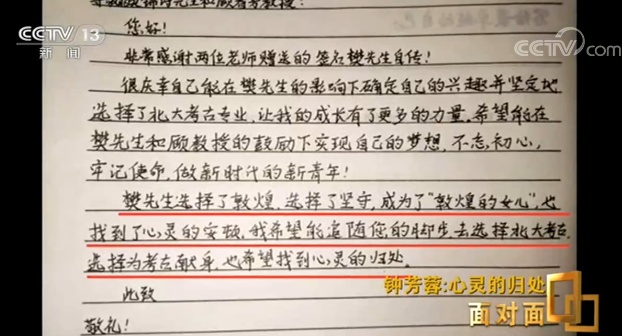 CCTV 13
新闻
CCTV.com
先生和顾春芳教授:
您好!
非常感谢两位老师赠送的签名樊先生自传!
很庆幸自己能在樊先生的影响下确定自己的兴趣并坚定地
选择了北大考古专业,让我的成长有了更多的力量,希望能在
樊先生和顾教授的鼓励下实现自己的梦想,不忘初心,
牢记使命,做新时代的新青年!
樊先生选择了敦煌,选择了坚守,成为了“敦煌的女儿”,也
找到了心灵的安顿,我希望能追随您的脚步去选择北大考古
选择为考古献身,也希望找到心灵的归处。
此致
敬礼!
钟芳蓉:心灵的归处
面对面